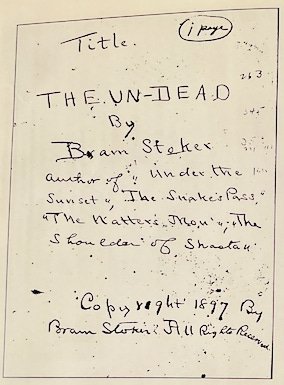 (1 page)
Title.
THE UN-DEAD
By
Bram Stoker
author of "Under the
Sunset", "The Snake's Pass,"
"The Watter's Mou'", "The
Shoulder of Shasta".
Copyright 1897 By
Bram Stoker. All Rights Reserved.